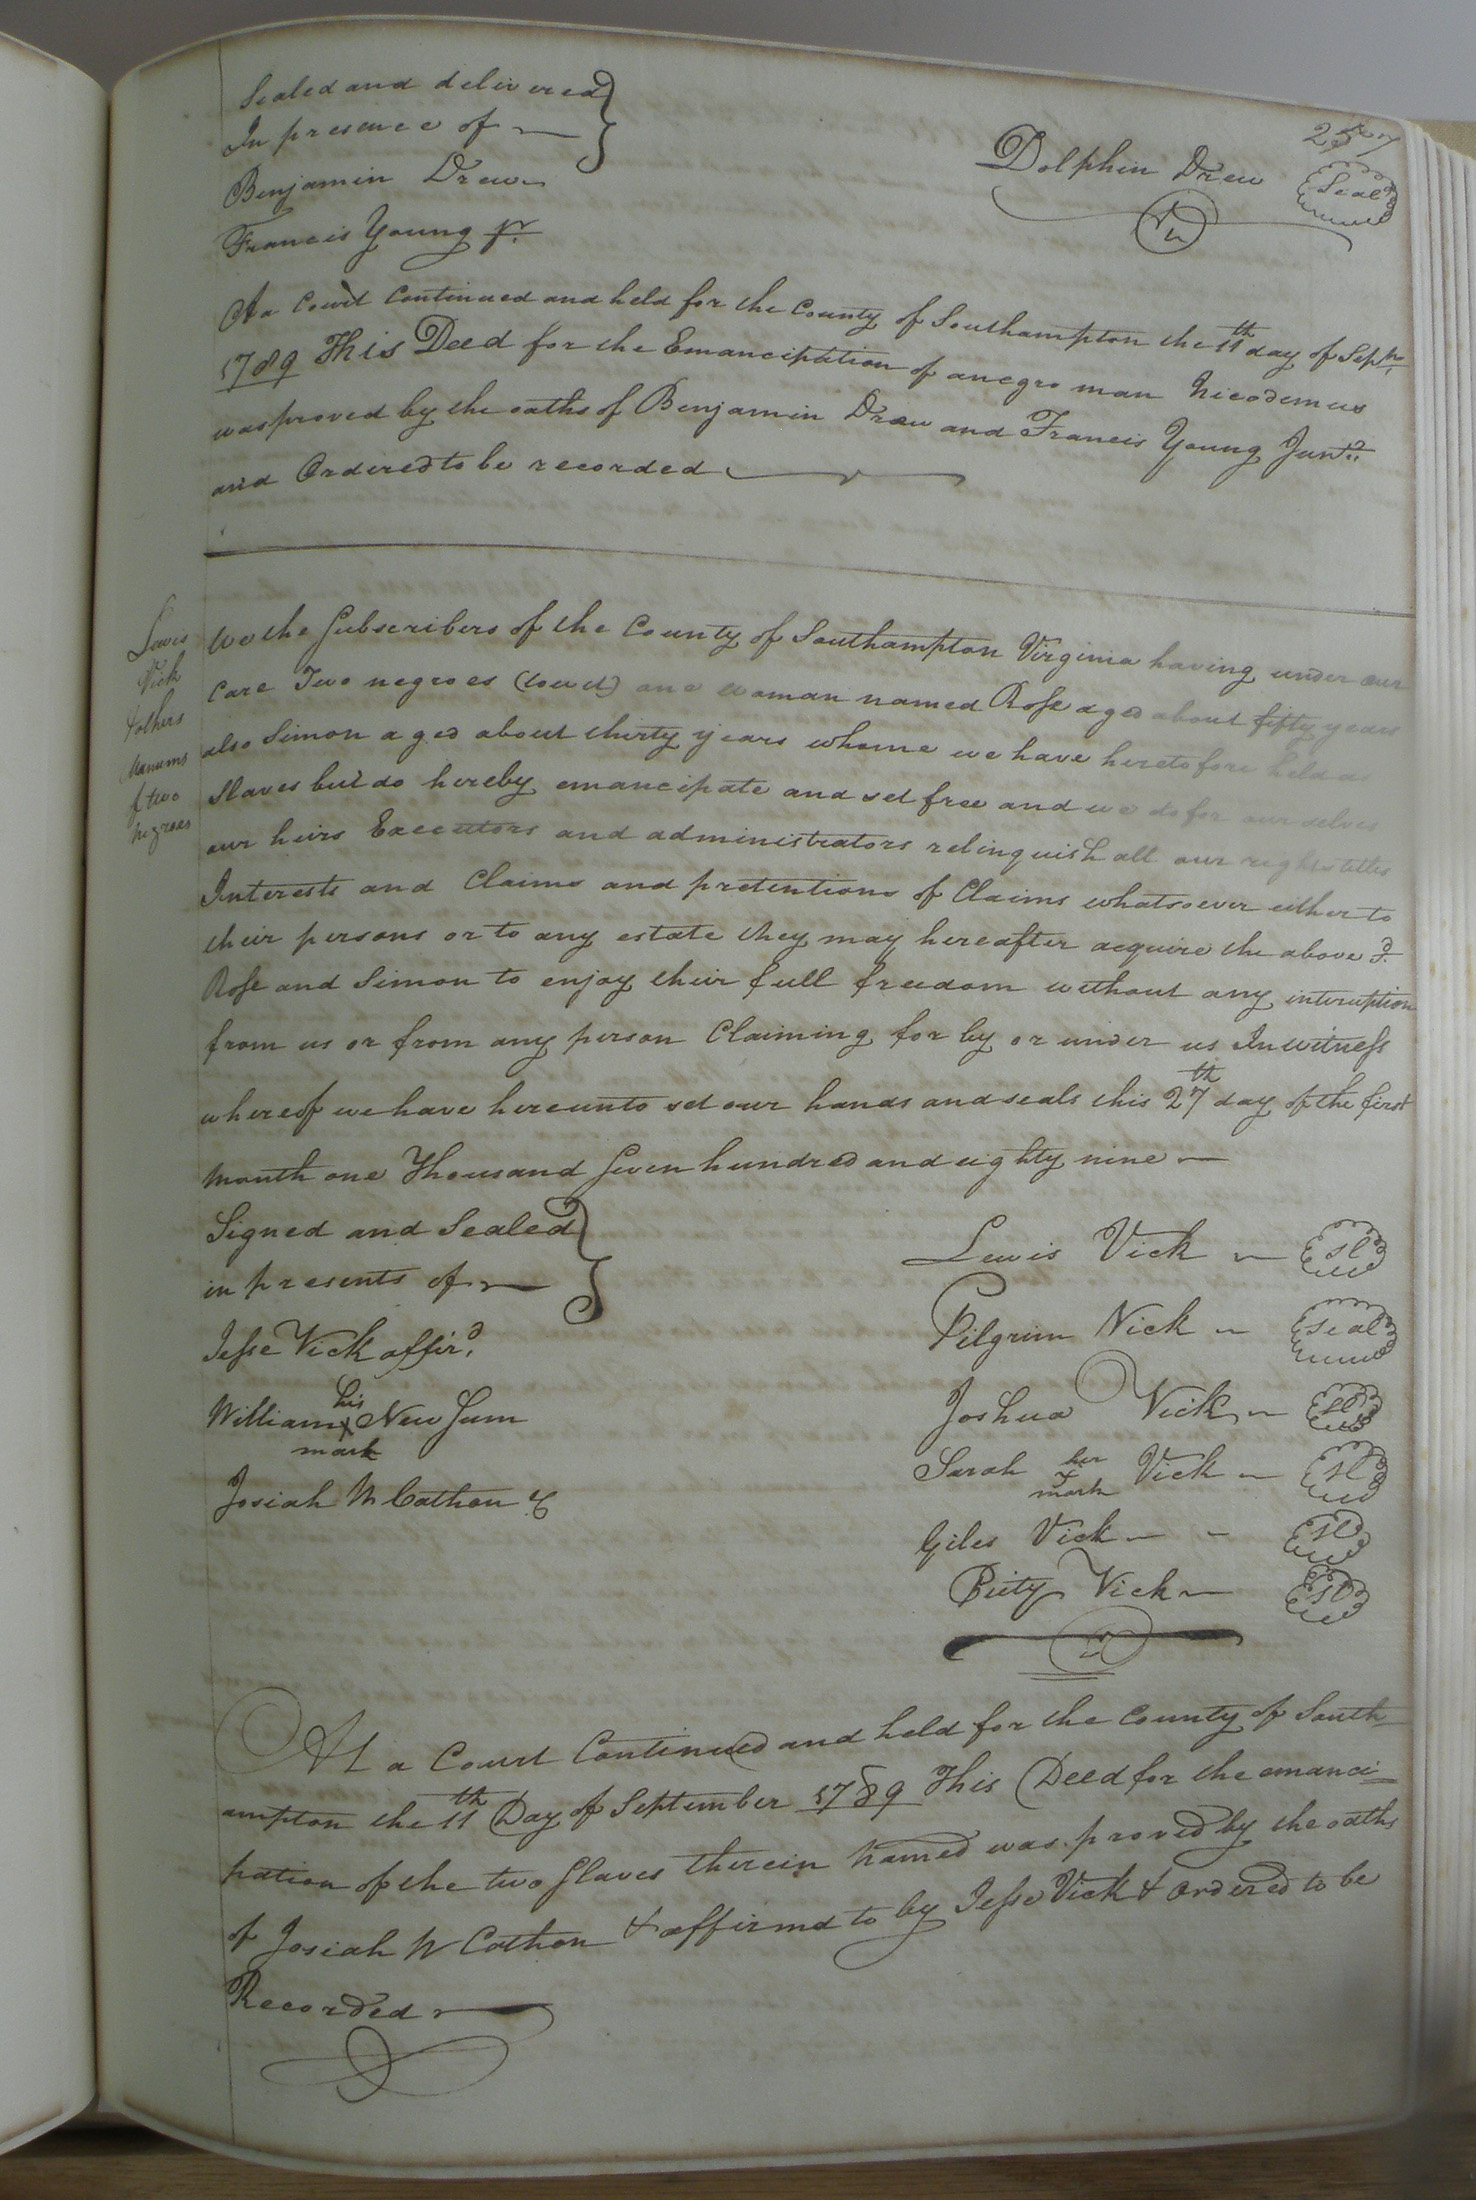 257
Sealed and delivered
In presence of
Benjamin Drew
Francis Young Jr.
Dolphin Drew Seal
At a Court Continued and held for the County of Southampton the 11th day of Sepr.
1789 This Deed for the Emancipation of a negro man Nicodemus
was proved by the oaths of Benjamin Drew and Francis Young Junr.
and Ordered to be recorded
Lewis
Vick
& others
Manums
of two
negroes
We the Subscribers of the County of Southampton Virginia having under our
Care Two negroes (towit) one woman named Rose aged about fifty years
also Simon aged about thirty years whome we have heretofore held as
Slaves but do hereby emancipate and set free and we do for our selves
our heirs Executors and administrators relinquish all our rights titles
Interests and Claims and pretentions of Claims whatsoever either to
their persons or to any estate they may hereafter acquire the above sd.
Rose and Simon to enjoy their full freedom without any interuption
from us or from any person Claiming for by or under us In witness
whereof we have hereunto set our hands and seals this 27th day of the first
month one Thousand Seven hundred and eighty nine
Signed and Sealed
in presents of
Jesse Vick affird.
William his X mark New Jum
Josiah W Cathon
Lewis Vick sl
Pilgrim Vick seal
Joshua Vick sl
Sarah her mark Vick sl
Giles Vick sl
Piety Vick sl
At a Court Continued and held for the County of South=
ampton the 11th Day of September 1789 This Deed for the emanci=
pation of the two Slaves therein named was proved by the oaths
of Josiah W Cathon & affirmd to by Jesse Vick & ordered to be
Recorded